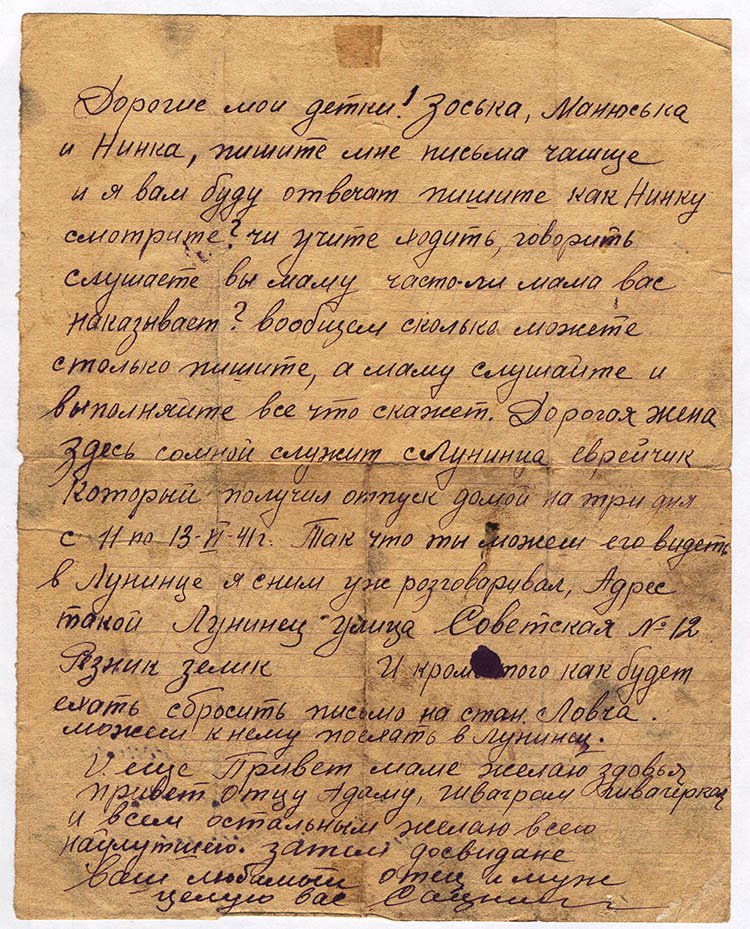 Дорогие мои детки! Зоська, Манюська
и Нинка, пишите мне письма чашще
и я вам буду отвечат пишите как Нинку
смотрите? чи учите ходить, говорить
слушаете вы маму часто-ли мама вас
наказывает? вообщем сколько можете
столько пишите, а маму слушайте и
выполняйте все что скажет. Дорогая жена
Здесь сомной служит сЛунинца еврейчик
Который получил отпуск домой на три дня
с 11 по 13-VI-41г. Так что ты можеш его видеть
в Лунинце я сним уж розговаривал, Адрес
такой Лунинец улица Советская № 12
Рэзник зелик И кром того как будет
ехать сбросить письмо на стан. Ловча.
можеш к нему поехать в Лунинец.
И еще Привет маме желаю здовья
привет отцу Адаму, шваграм швагеркам
и всем остальным желаю всего
найлутшего. затем досвидане
Ваш любимый отец и муж
целую вас